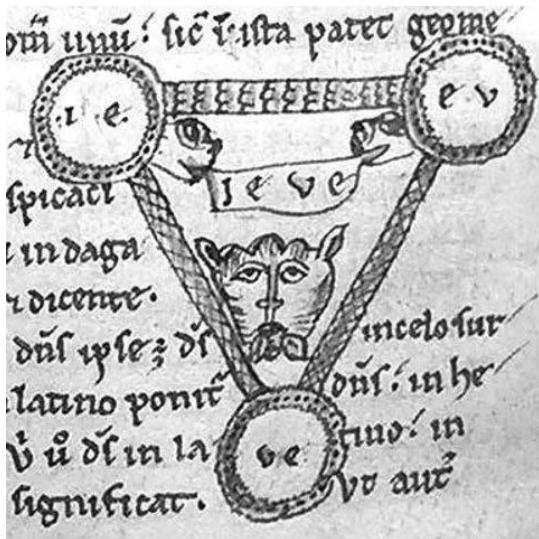 om̄ unū: sic̄ ī ista patet geome
I e
e v
I e v e
spicaci
in daga
dicente.
dn̄s ipse ꝫ ds̄
in celo sur
latino ponit᷑
dn̄s. in he
v e
ds̄ in la
tino. in
significat.
Vt aut᷑